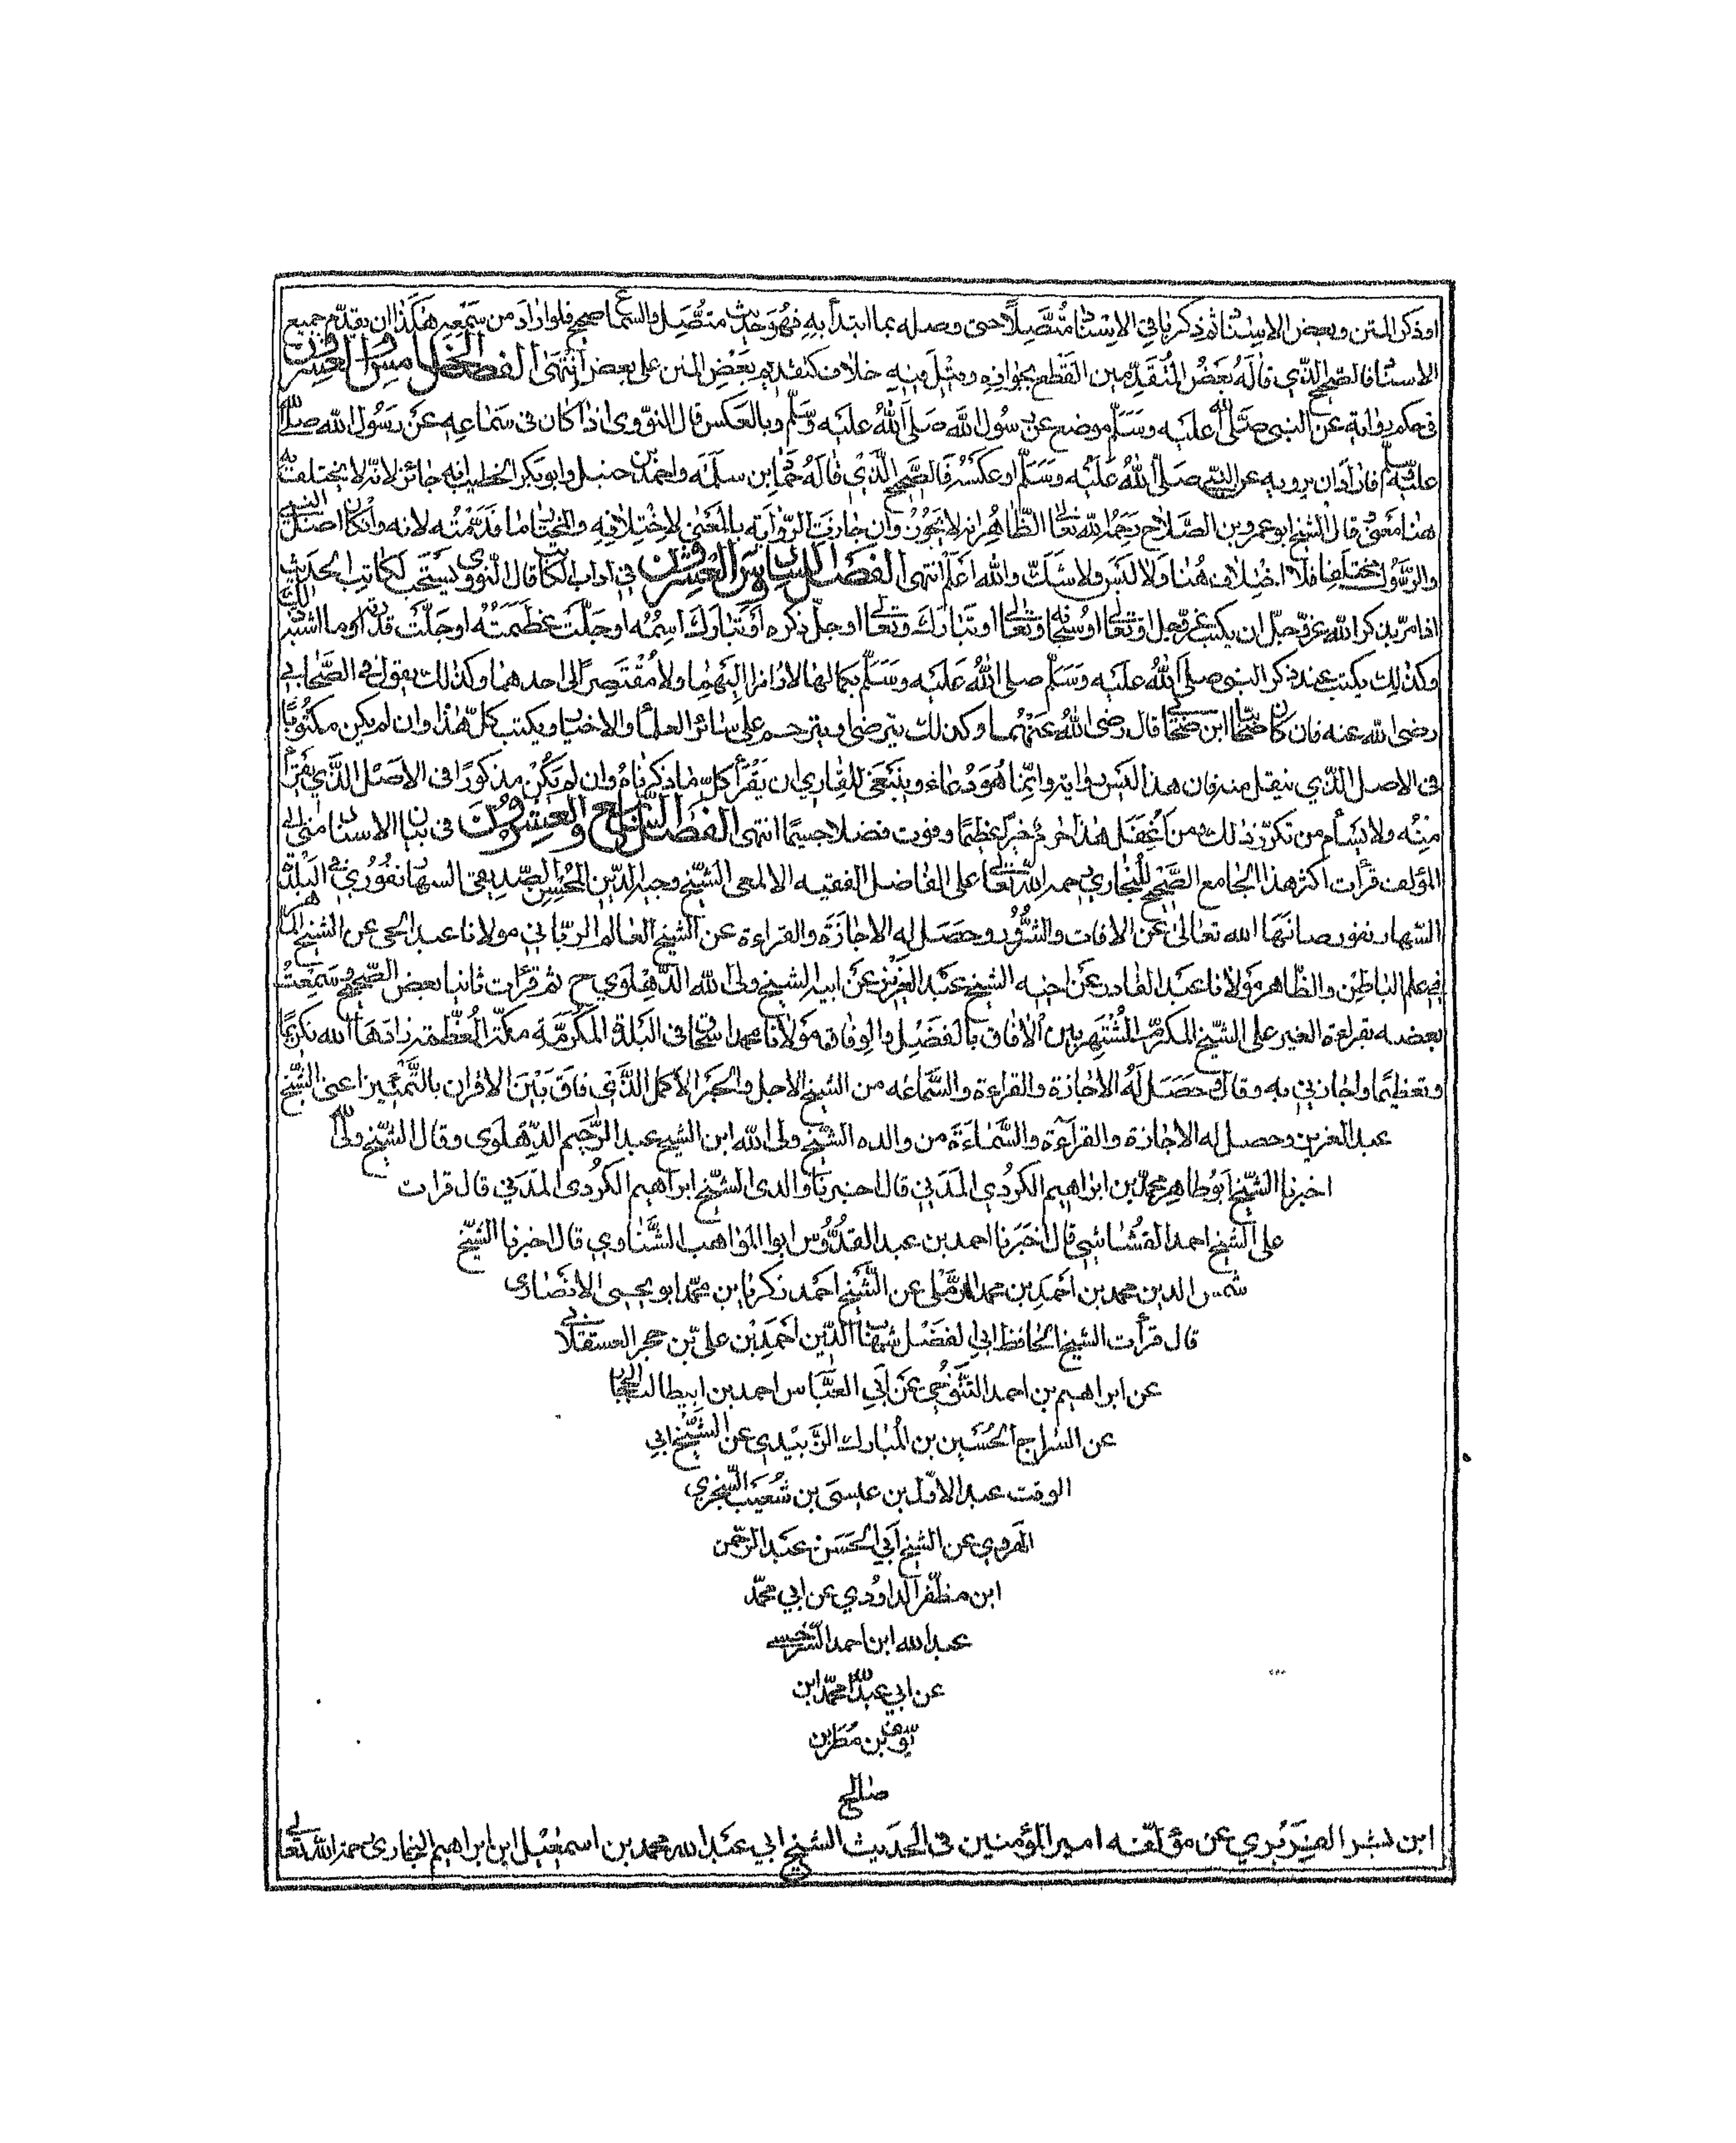 او ذكر المتن وبعض الاسناد ثم ذكر باقي الاسناد متصلا حتى وصله بما ابتدأ به فهو حديث متصل والسماع صحيح فلو اراد من سمعه هكذا ان يقدم جميع
الاسناد فالصحيح الذي قاله بعض المتقدمين القطع بجوازه وقيل فيه خلاف كتقديم بعض المتن على بعض انتهى الفصل الخامس والعشرون
في حكم رواية عن النبي صلى الله عليه وسلم موضع عن رسول الله صلى الله عليه وسلم وبالعكس قال النووي اذا كان في سماعه عن رسول الله صلى الله
عليه وسلم فاراد ان يرويه عن النبي صلى الله عليه وسلم او عكسه فالصحيح الذي قاله حماد بن سلمة واحمد بن حنبل وابو بكر الخطيب انه جائز لانه لا يختلف به
هنا معنى وقال الشيخ ابو عمرو بن الصلاح رحمه الله تعالى الظاهر انه لا يجوز وان جازت الرواية بالمعنى لاختلافه والمختار ما قدمته لانه وان كان اصل النبي
والرسول مختلفا فلا اختلاف هنا ولا لبس ولا شك والله اعلم انتهى الفصل السادس والعشرون في آداب الكتاب قال النووي يستحب لكاتب الحديث
اذا مر بذكر الله عز وجل ان يكتب عز وجل او تعالى او سبحانه وتعالى او تبارك وتعالى او جل ذكره او تبارك اسمه او جلت عظمته او جلت قدرته او ما اشبه ذلك
وكذلك يكتب عند ذكر النبي صلى الله عليه وسلم صلى الله عليه وسلم بكمالها لا رامزا اليهما ولا مقتصرا الى احدهما وكذلك يقول في الصحابي
رضي الله عنه فان كان صحابيا ابن صحابي قال رضي الله عنهما وكذلك يترضى ويترحم على سائر العلماء والاخيار ويكتب كل هذا وان لم يكن مكتوبا
في الاصل الذي ينقل منه فان هذا ليس رواية وانما هو دعاء وينبغي للقاري ان يقرأ كل ما ذكرناه وان لم يكن مذكورا في الاصل الذي يقرأ
منه ولا يسأم من تكرر ذلك ومن اغفل هذا حرم خيرا عظيما وفوت فضلا جسيما انتهى الفصل السابع والعشرون في بيان الاسناد مني الى
المؤلف قرأت اكثر هذا الجامع الصحيح للبخاري رحمه الله تعالى على الفاضل الفقيه الالمعي الشيخ وجيه الدين المحسن الصديقي السهارنفوري في البلدة
السهارنفور صانها الله تعالى عن الافات والشرور وحصل له الاجازة والقراءة عن الشيخ العالم الرباني مولانا عبد الحي عن الشيخ الماهر
في علم الباطن والظاهر مولانا عبد القادر عن اخيه الشيخ عبد العزيز عن ابيه الشيخ ولي الله الدهلوي ح ثم قرأت ثانيا بعض الصحيح وسمعت
بعضه بقراءة الغير على الشيخ المكرم المشتهر بين الافاق بالفضل والوفاق مولانا محمد اسحاق في البلدة المكرمة مكة المعظمة زادها الله تكريما
وتعظيما واجازني به وقال حصل له الاجازة والقراءة والسماعه من الشيخ الاجل والحبر الاكمل الذي فاق بين الاقران بالتمييز اعني الشيخ
عبد العزيز وحصل له الاجازة والقراءة والسماءة من والده الشيخ ولي الله ابن الشيخ عبد الرحيم الدهلوي وقال الشيخ ولي الله
اخبرنا الشيخ ابو طاهر محمد بن ابراهيم الكردي المدني قال اخبرنا والدي الشيخ ابراهيم الكردي المدني قال قرات
على الشيخ احمد القشاشي قال اخبرنا احمد بن عبد القدوس ابو المواهب الشناوي قال اخبرنا الشيخ
شمس الدين محمد بن احمد بن محمد الرملي عن الشيخ احمد زكريا بن محمد ابو يحيى الانصاري
قال قرأت الشيخ الحافظ ابي الفضل شهاب الدين احمد بن علي بن حجر العسقلاني
عن ابراهيم بن احمد التنوخي عن ابي العباس احمد بن ابيطالب الحجار
عن السراج الحسين بن المبارك الزبيدي عن الشيخ ابي
الوقت عبد الاول بن عيسى بن شعيب السنجري
الهروي عن الشيخ ابي الحسن عبد الرحمن
ابن مظفر الداودي عن ابي محمد
عبد الله ابن احمد السرخسي
عن ابي عبد الله محمد ابن
يوسف بن مطر بن
صالح
ابن بشر الفربري عن مؤلفه امير المؤمنين في الحديث الشيخ ابي عبد الله محمد بن اسمعيل ابن ابراهيم البخاري رحمه الله تعالى